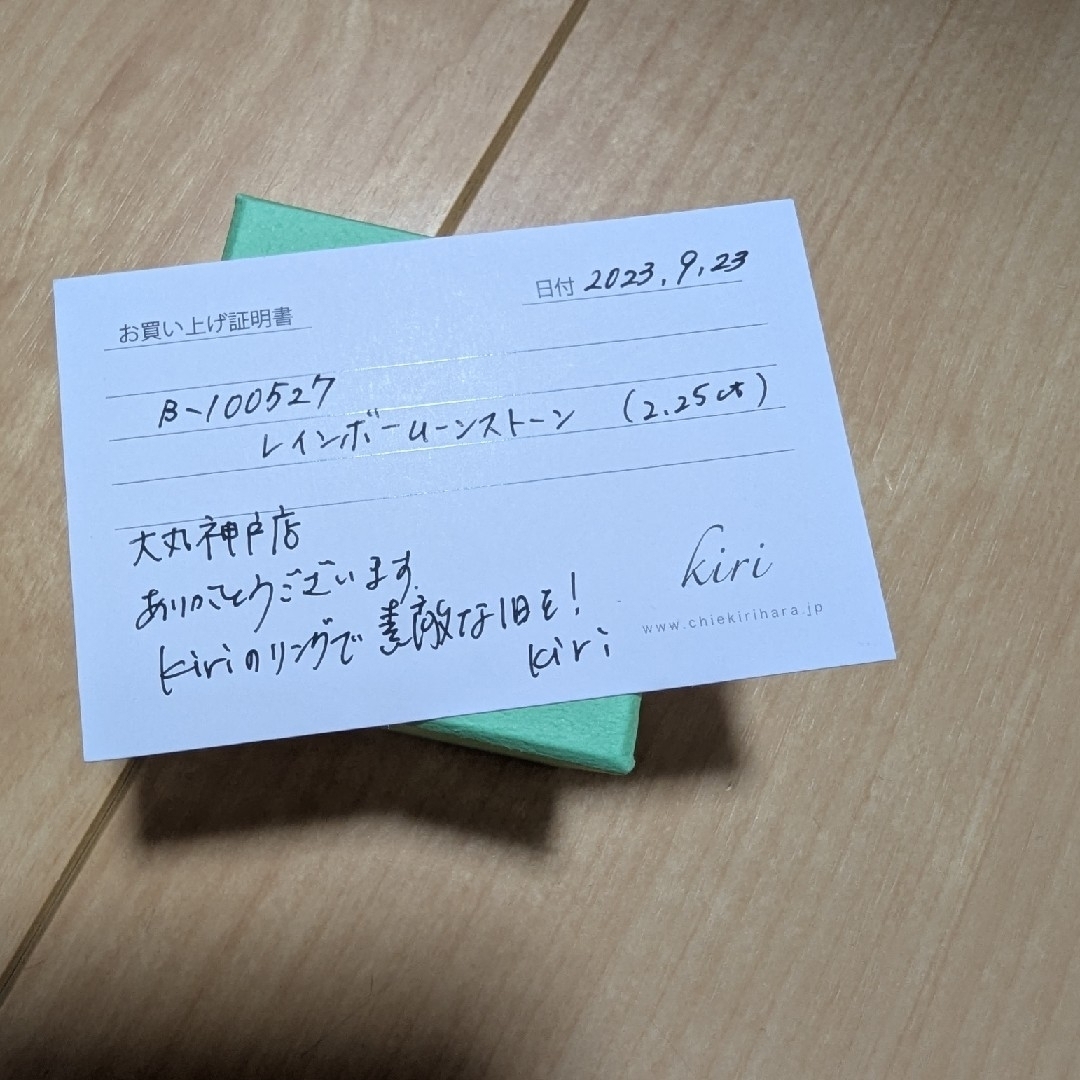 お買い上げ証明書
日付 2023.9.23
B-100527
レインボームーンストーン (2.25ct)
大丸神戸店
ありがとうございます.
kiriのリングで素敵な1日を!
kiri
kiri
www.chiekirihara.jp